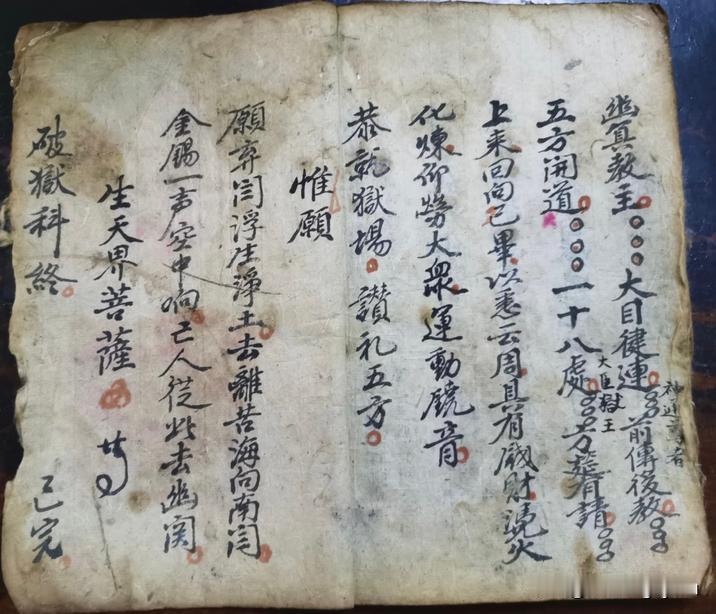 幽冥教主○○○大目犍連○○前傳後教○○
神通尊者
五方開道○○○一十八處○○方筵看請○○
大臣獄王
上来回向已畢以悉云周具有感財澆火
化煉仰勞大衆運動鐃音
恭就獄場讃礼五方
惟願
願弃閻浮生淨土去離苦海向南閻
金錫一声空中响亡人從此去幽関
生天界菩薩
破獄科終
已完